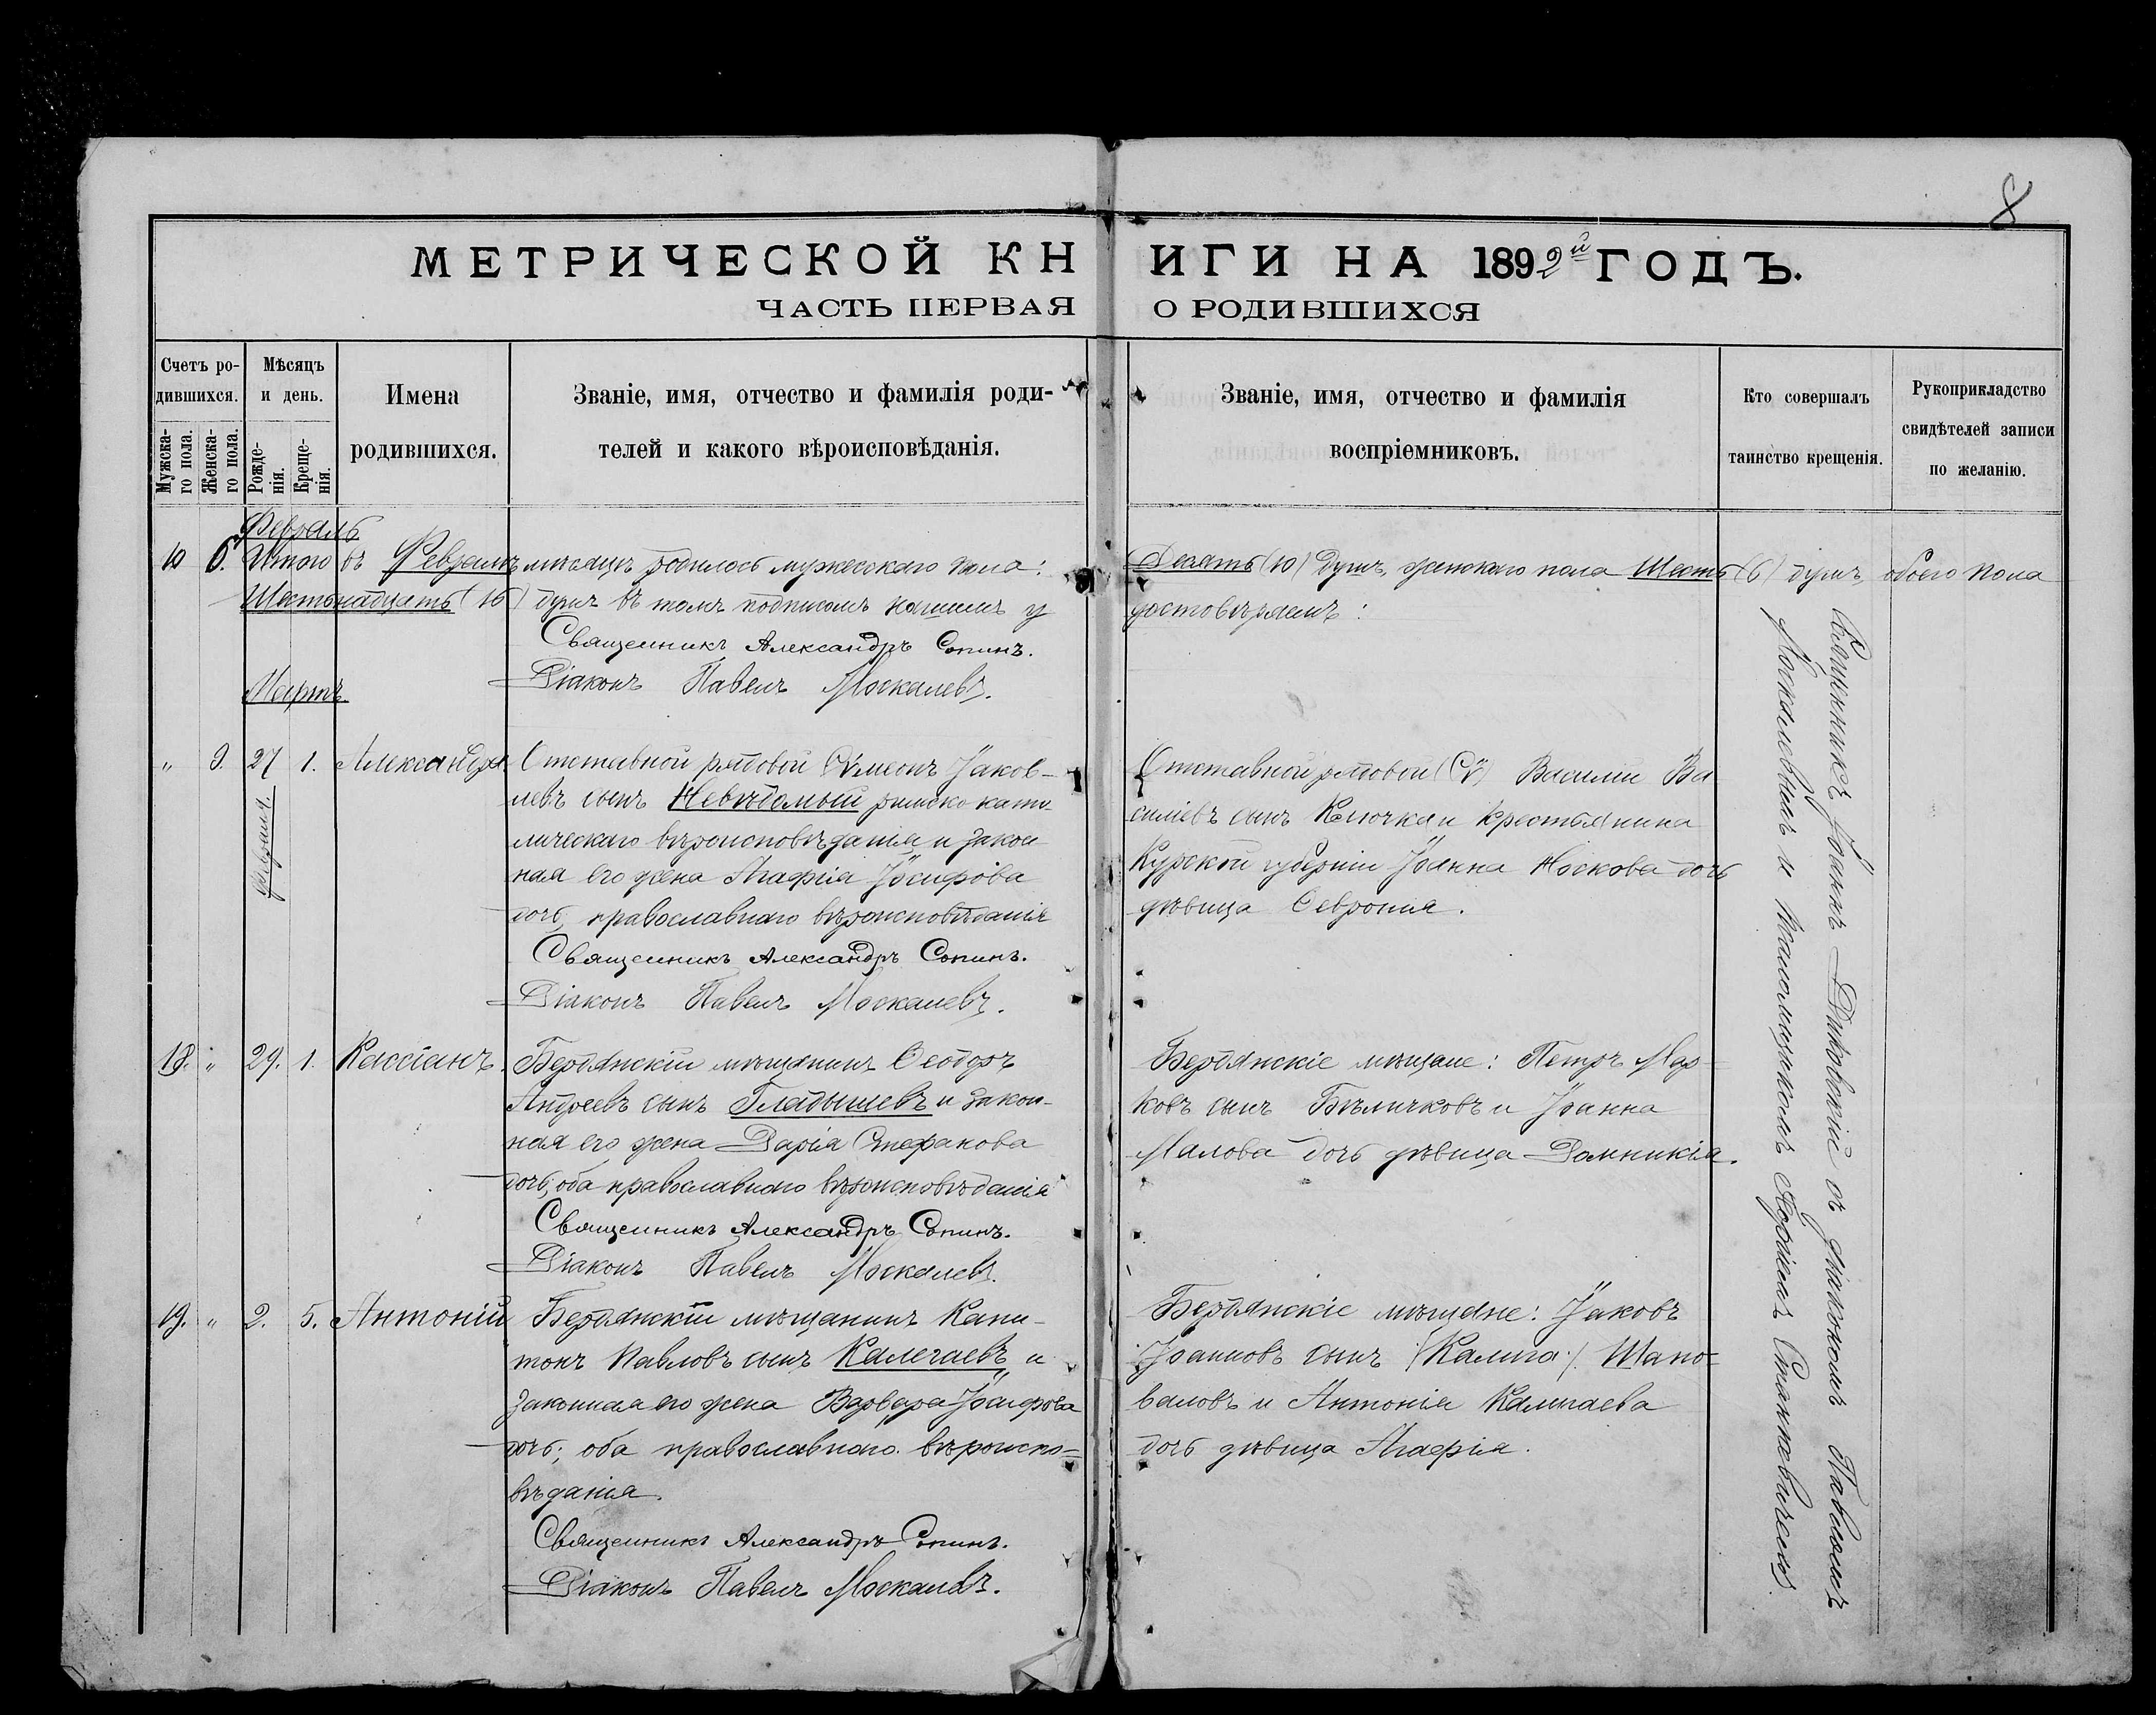 8
МЕТРИЧЕСКОЙ КНИГИ НА 1892й ГОДЪ.
ЧАСТЬ ПЕРВАЯ О РОДИВШИХСЯ
Счетъ родившихся.
Мужскаго пола.
Женскаго пола.
Мѣсяцъ и день.
Рожденія.
Крещенія.
Имена
родившихся.
Званіе, имя, отчество и фамилія роди-
телей и какого вѣроисповѣданія.
Званіе, имя, отчество и фамилія
воспріемниковъ.
Кто совершалъ
таинство крещенія.
Рукоприкладство
свидѣтелей записи
по желанію.
Февраль
10 6. Итого въ Февралѣ мѣсяцѣ родилось мужескаго пола: Десять (10) душъ, женскаго пола Шесть (6) душъ, обоего пола
Шестьнадцать (16) душъ въ томъ подписомъ нашимъ удостовѣряемъ:
Священникъ Александръ Сопинъ.
Діаконъ Павелъ Москалевъ.
Мартъ.
" 9. 27 февраля 1. Александра.
Отставной рядовой Сѵмеонъ Іаков-
левъ сынъ Невѣдомый римско като-
лическаго вѣроисповѣданія и закон
ная его жена Агафія Іосифова
дочь, православнаго вѣроисповѣданія
Священникъ Александръ Сопинъ.
Діаконъ Павелъ Москалевъ.
Отставной рядовой Василій Ва-
силіевъ сынъ Ключка и крестьянина
Курской губерніи Іоанна Носкова дочь
дѣвица Февронія.
18. " 29. 1. Кассіанъ.
Бердянскій мѣщанинъ Ѳеодоръ
Андреевъ сынъ Гладышевъ и закон-
ная его жена Дарія Стефанова
дочь, оба православнаго вѣроисповѣданія
Священникъ Александръ Сопинъ.
Діаконъ Павелъ Москалевъ.
Бердянскіе мѣщане: Петръ Мар-
ковъ сынъ Бѣличковъ и Іоанна
Малова дочь дѣвица Домникія.
19. " 2. 5. Антоній
Бердянскій мѣщанинъ Капи-
тонъ Павловъ сынъ Калегаевъ и
законная его жена Варвара Іосифова
дочь; оба православнаго вѣроиспо-
вѣданія.
Священникъ Александръ Сопинъ.
Діаконъ Павелъ Москалевъ.
Бердянскіе мѣщане: Іаковъ
Іоанновъ сынъ Шапо-
валовъ и Антонія Калигаева
дочь дѣвица Агафія.
Священникъ Іоаннъ Диковскій съ діакономъ Павломъ
Москалевымъ и псаломщикомъ Станкевичемъ.